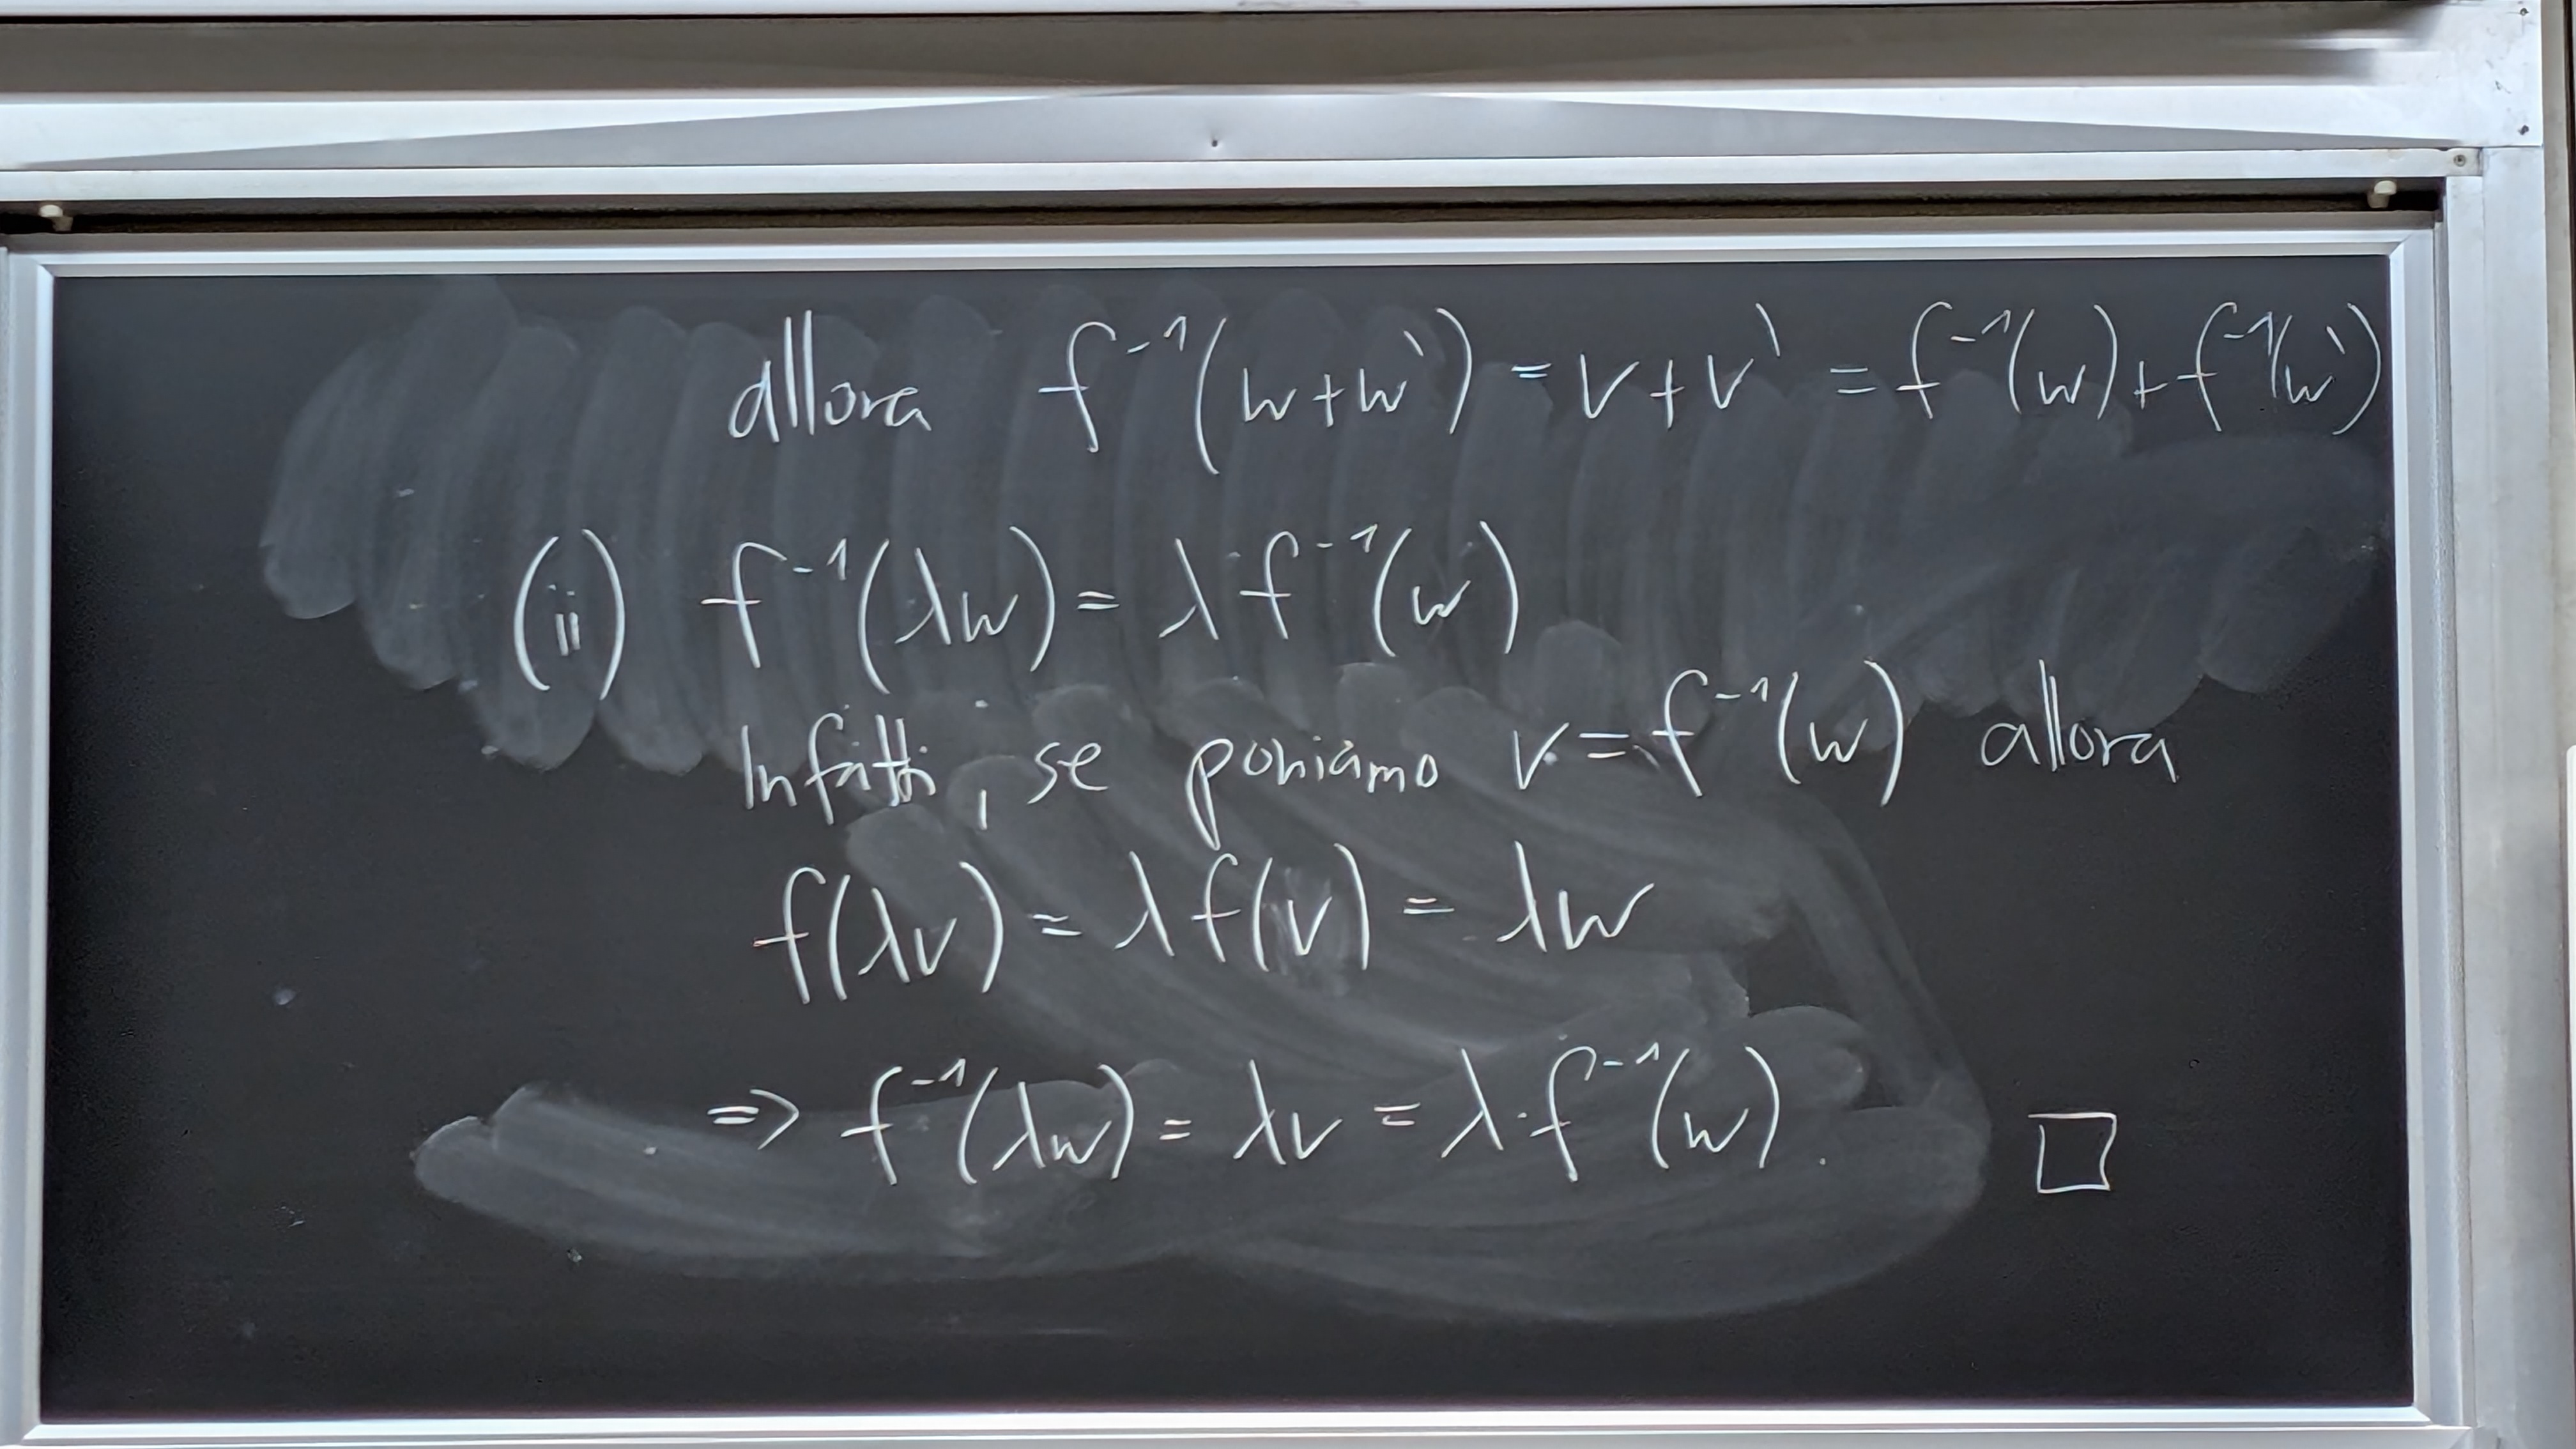 allora f⁻¹(w+w') = v+v' = f⁻¹(w)+f⁻¹(w')
(ii) f⁻¹(λw) = λ·f⁻¹(w)
Infatti, se poniamo v = f⁻¹(w) allora
f(λv) = λf(v) = λw
=> f⁻¹(λw) = λv = λ·f⁻¹(w). □